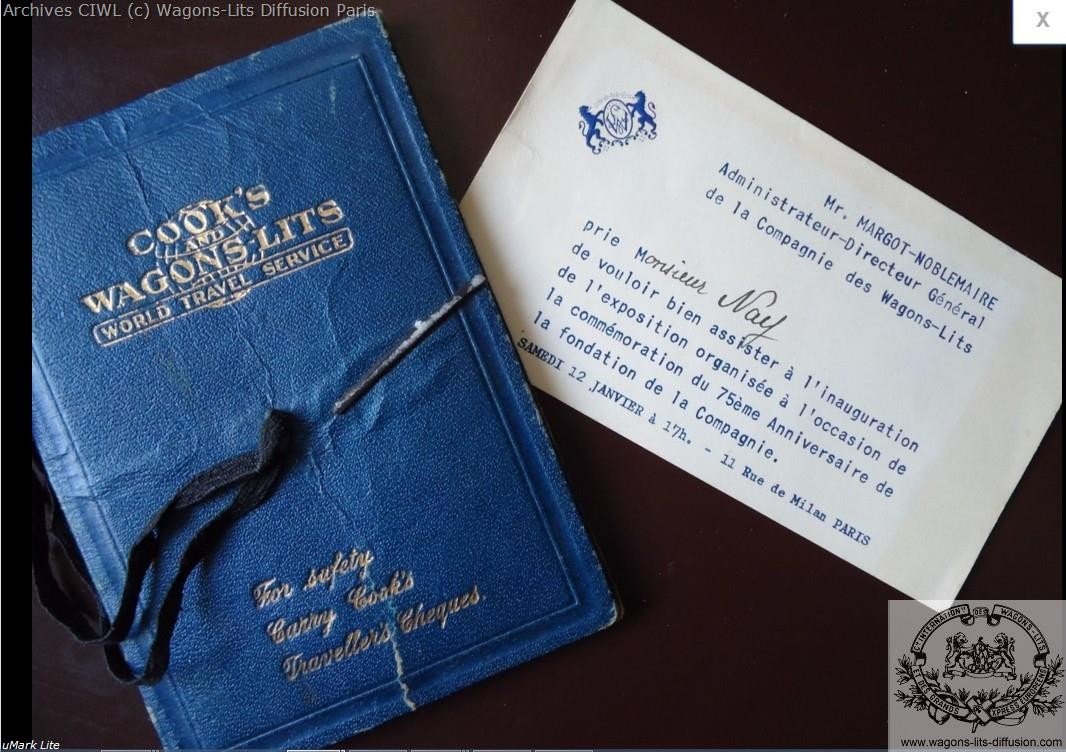 Archives CIWL (c) Wagons-Lits Diffusion Paris
X
COOK'S
AND
WAGONS-LITS
WORLD TRAVEL SERVICE
For safety
Carry Cook's
Traveller's Cheques.
Mr. MARGOT-NOBLEMAIRE
Administrateur-Directeur Général
de la Compagnie des Wagons-Lits
prie Monsieur Nay
de vouloir bien assister à l'inauguration
de l'exposition organisée à l'occasion de
la commémoration du 75ème Anniversaire de
la fondation de la Compagnie.
SAMEDI 12 JANVIER à 17h. - 11 Rue de Milan PARIS
CIE INTERNATIONALE DES WAGONS-LITS
ET DES GRANDS EXPRESS EUROPÉENS
www.wagons-lits-diffusion.com
uMark Lite